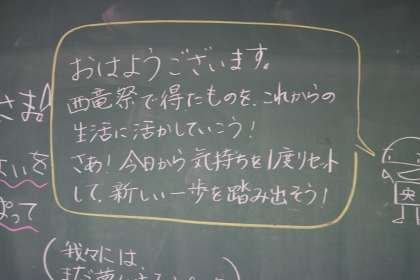 おはようございます。
西竜祭で得たものを、これからの
生活に活かしていこう!
さあ!今日から気持ちを1度リセット
して、新しい一歩を踏み出そう!
さま!
いを
って
央
(我々には